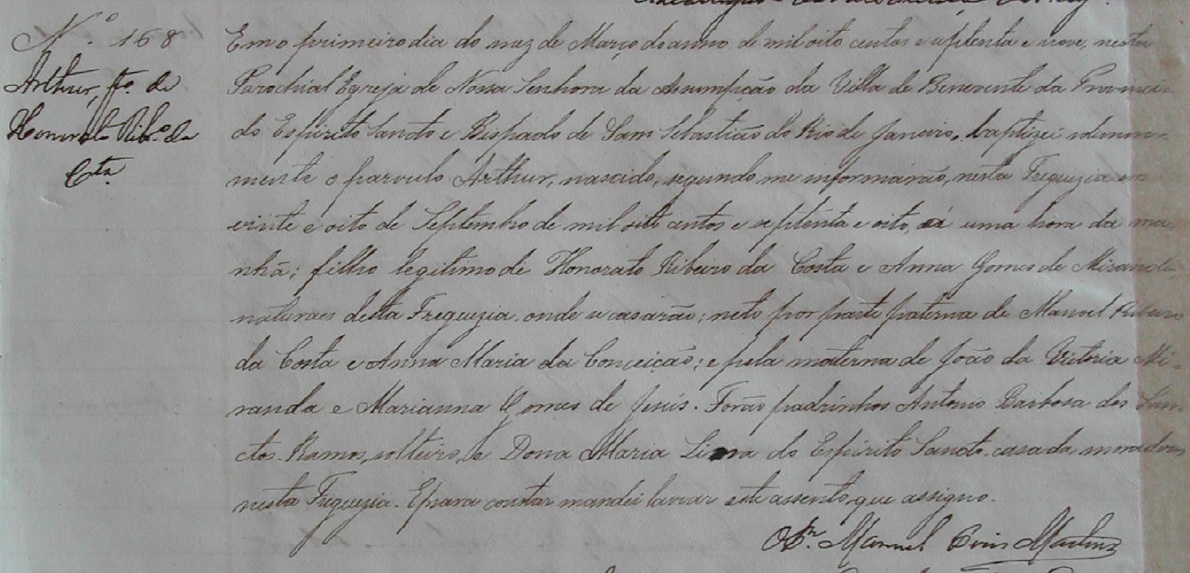 N.º 168
Arthur, fº. de
Honorato Ribº. da
Cta.
Em o primeiro dia do mez de Março do anno de mil oito centos e septenta e nove, nesta
Parochial Egreja de Nossa Senhora da Assumpção da Villa de Benevente da Provincia
do Espirito Sancto e Bispado de Sam Sebastião do Rio de Janeiro, baptizei solemne-
mente o parvulo Arthur, nascido, segundo me informárão, nesta Freguezia em
vinte e oito de Septembro de mil oito centos e septenta e oito, á uma hora da ma
nhã; filho legitimo de Honorato Ribeiro da Costa e Anna Gomes de Miranda
naturaes desta Freguezia onde se casarão; neto por parte paterna de Manoel Ribeiro
da Costa e Anna Maria da Conceição; e pela materna de João da Victoria Mi-
randa e Marianna Gomes de Jesús. Forão padrinhos Antonio Barbosa dos San-
ctos Ramos, solteiro, e Dona Maria do Espirito Sancto, casada moradores
nesta Freguezia. E para constar mandei lavrar este assento, que assigno.
Manuel Martins